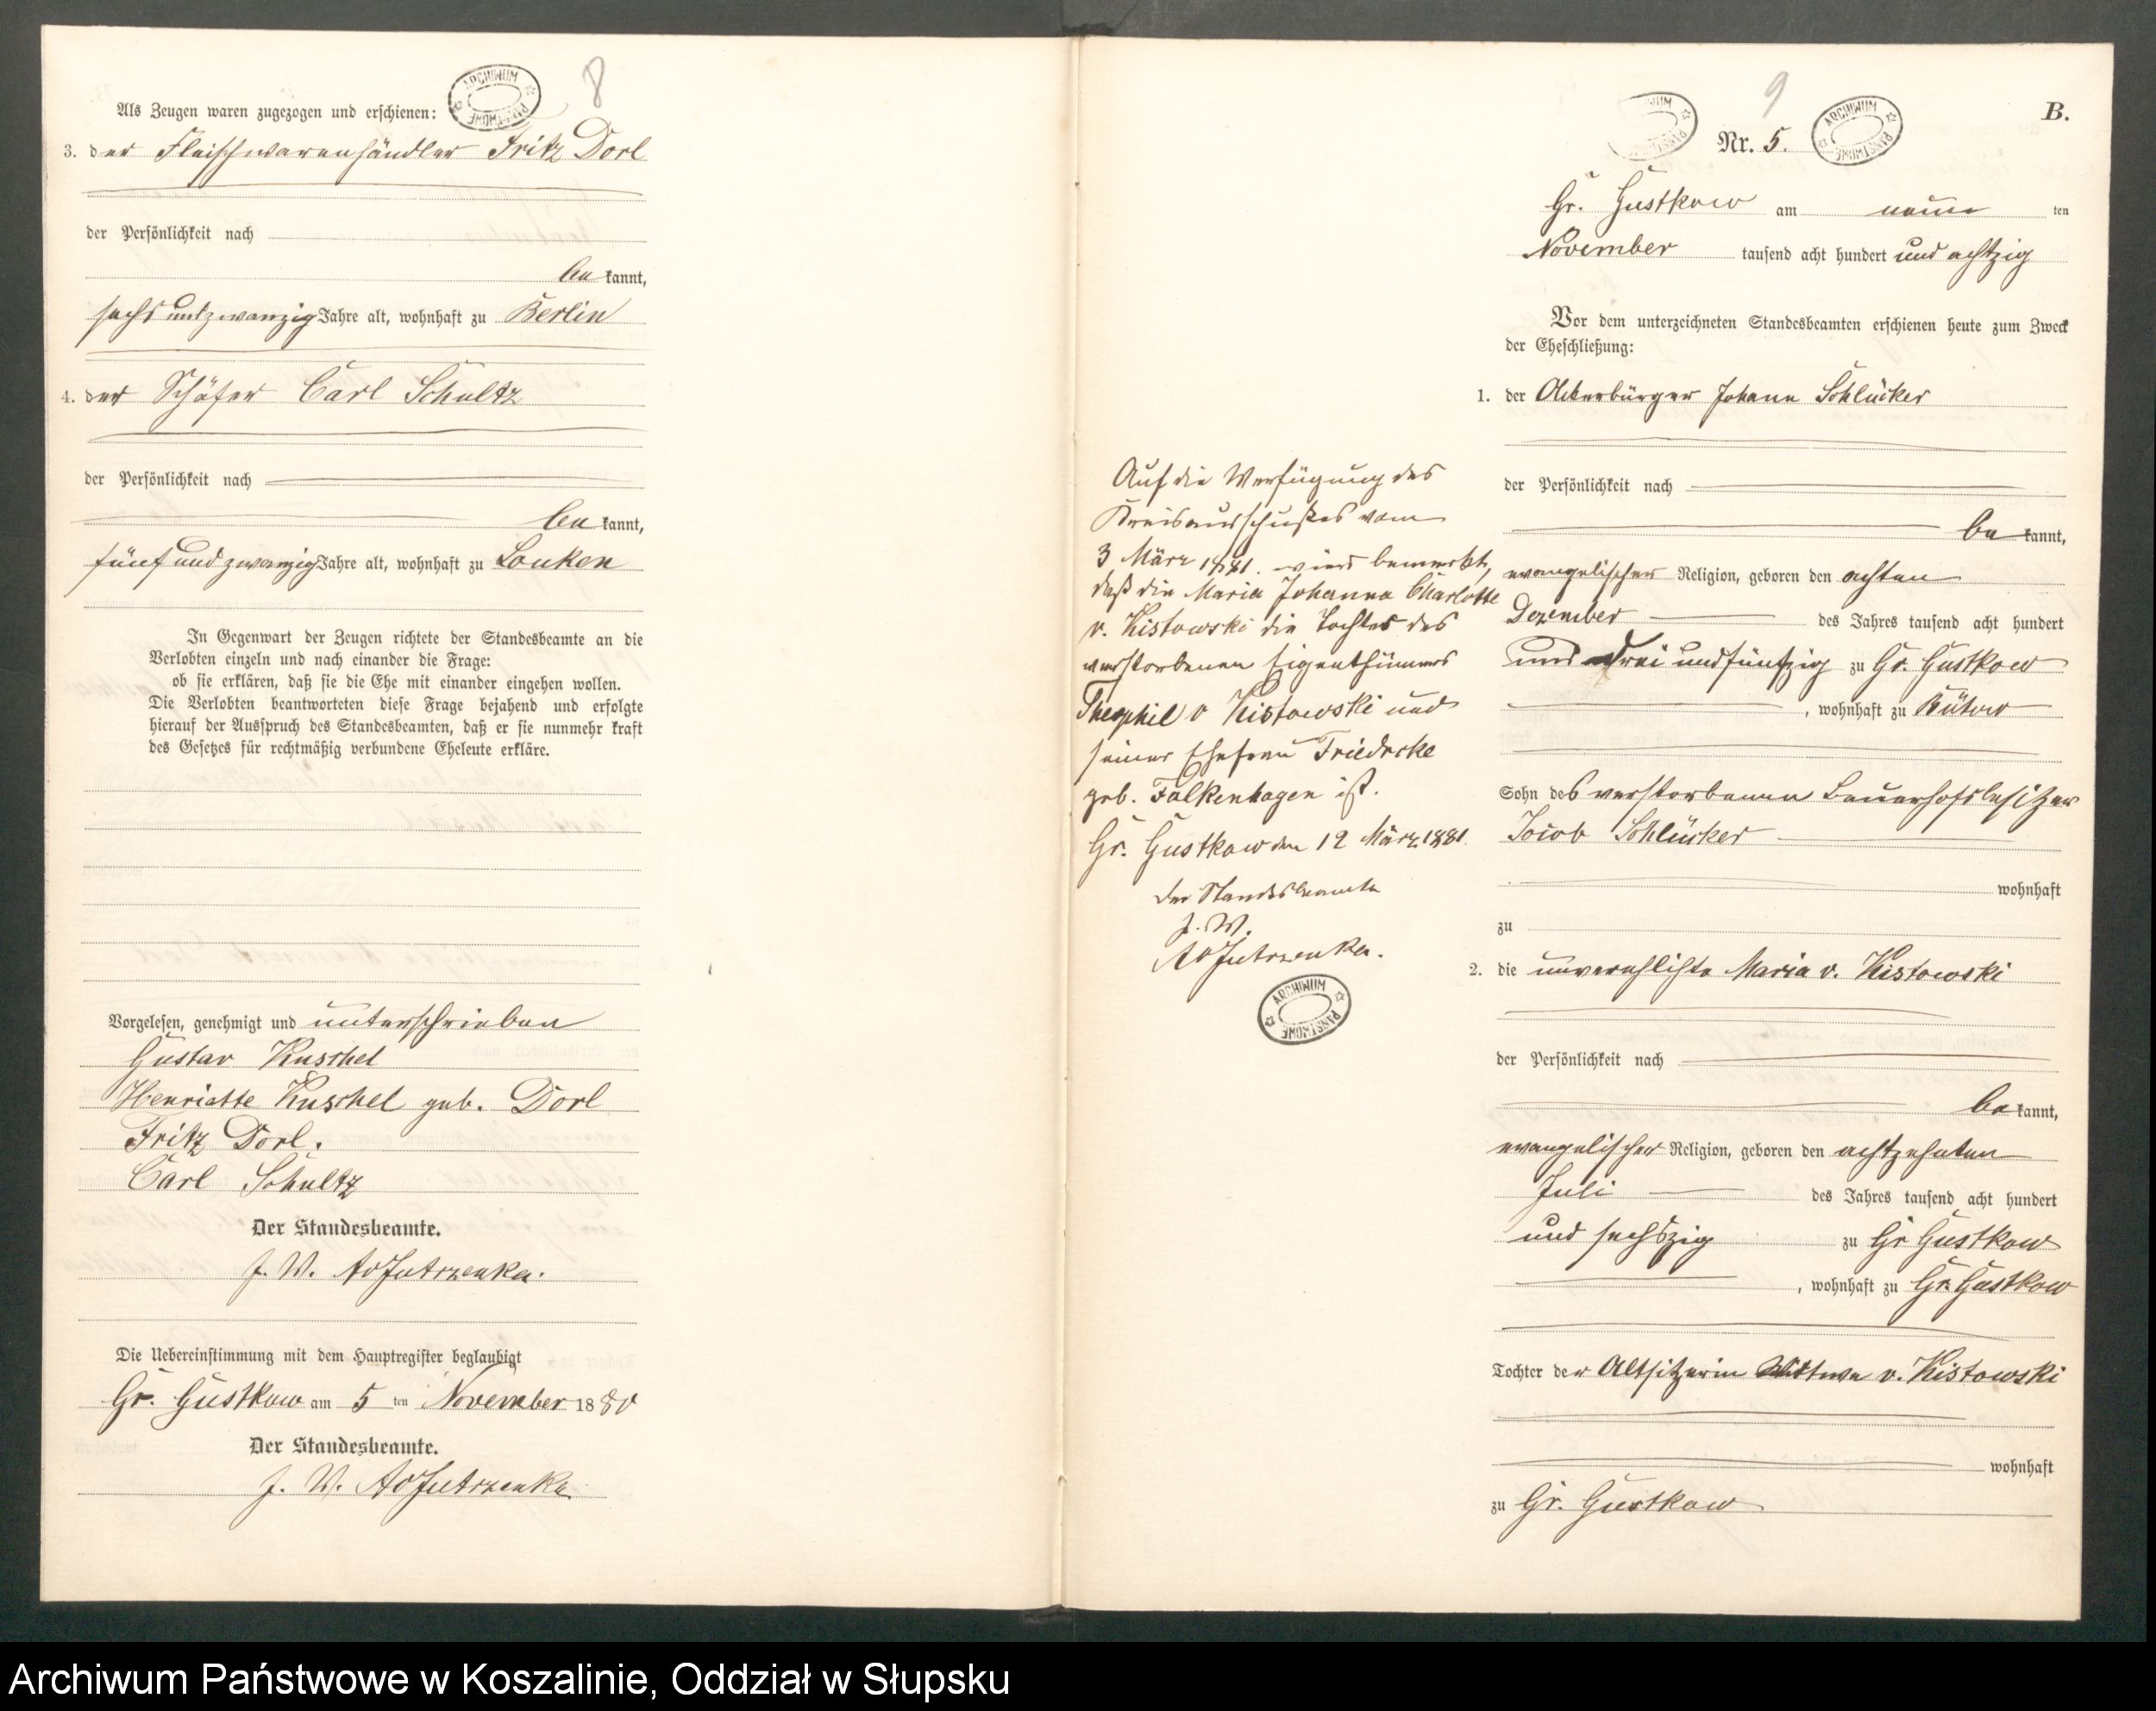 8
Als Zeugen waren zugezogen und erschienen:
3. der Fleischwarenhändler Fritz Dorl
der Persönlichkeit nach
be kannt,
sechs und zwanzig Jahre alt, wohnhaft zu Berlin
4. der Schäfer Carl Schultz
der Persönlichkeit nach
be kannt,
fünf und zwanzig Jahre alt, wohnhaft zu Sonken
In Gegenwart der Zeugen richtete der Standesbeamte an die
Verlobten einzeln und nach einander die Frage:
ob sie erklären, daß sie die Ehe mit einander eingehen wollen.
Die Verlobten beantworteten diese Frage bejahend und erfolgte
hierauf der Ausspruch des Standesbeamten, daß er sie nunmehr kraft
des Gesetzes für rechtmäßig verbundene Eheleute erkläre.
Vorgelesen, genehmigt und unterschrieben
Gustav Kuschel
Henriette Kuschel geb. Dorl
Fritz Dorl.
Carl Schultz
Der Standesbeamte.
J. V. AvJutrzenka.
Die Uebereinstimmung mit dem Hauptregister beglaubigt
Gr. Gustkow am 5 ten November 1880
Der Standesbeamte.
J. V. AvJutrzenka
ARCHIWUM PAŃSTWOWE
9
B.
Nr. 5.
Gr. Gustkow am neun ten
November tausend acht hundert und achtzig
Vor dem unterzeichneten Standesbeamten erschienen heute zum Zweck
der Eheschließung:
1. der Ackerbürger Johann Schlücker
der Persönlichkeit nach
be kannt,
evangelischer Religion, geboren den achten
Dezember des Jahres tausend acht hundert
und drei und fünfzig zu Gr. Gustkow
, wohnhaft zu Bütow
Sohn des verstorbenen Bauerhofsbesitzer
Jacob Schlücker
wohnhaft
zu
2. die unverehlichte Maria v. Kistowski
der Persönlichkeit nach
be kannt,
evangelischer Religion, geboren den achtzehnten
Juli des Jahres tausend acht hundert
und sechszig zu Gr Gustkow
, wohnhaft zu Gr. Gustkow
Tochter der Altsitzerin Wittwe v. Kistowski
wohnhaft
zu Gr. Gustkow
Auf die Verfügung des
Kreisausschußes vom
3 März 1881. wird bemerkt,
daß die Maria Johanna Charlotte
v. Kistowski die Tochter des
verstorbenen Eigenthümers
Theophil v Kistowski und
seiner Ehefrau Friedrcke
geb. Falkenhagen ist.
Gr. Gustkow den 12 März 1881.
Der Standesbeamte
J. V.
AvJutrzenka.
ARCHIWUM PAŃSTWOWE
Archiwum Państwowe w Koszalinie, Oddział w Słupsku